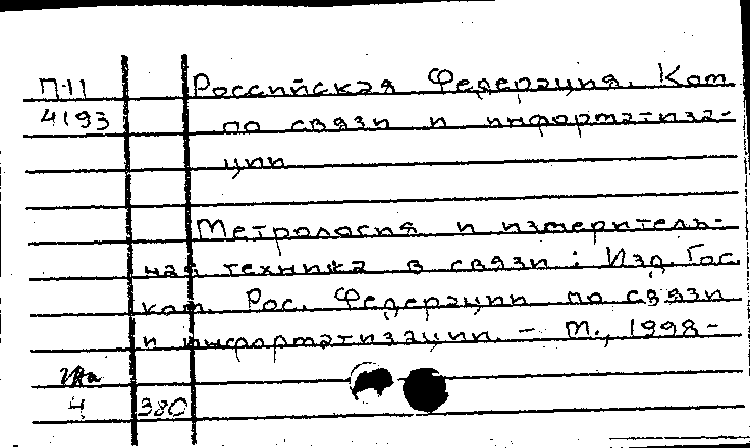 П-11 Российская Федерация. Ком.
4193 по связи и информатиза-
ции
Метрология и измеритель-
ная техника в связи : Изд. Гос.
ком. Рос. Федерации по связи
и информатизации. – М., 1998-
4 380